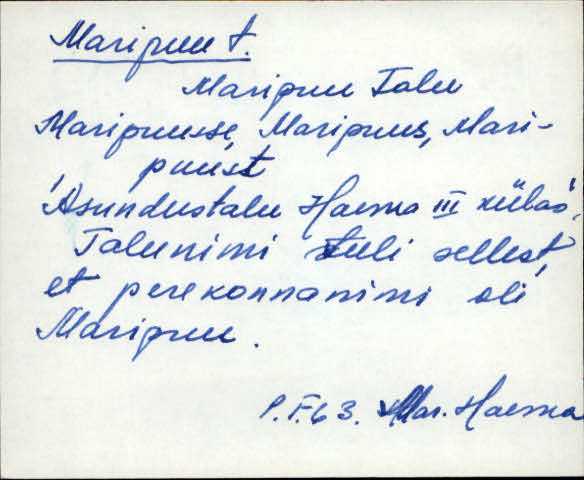 Maripuu t.
Maripuu Talu
Maripuusse, Maripuus, Mari-
puust
Asundustalu Haesma III külas,
Talunimi tuli sellest,
et perekonnanimi oli
Maripuu.
P.F.63. Mar. Haesma